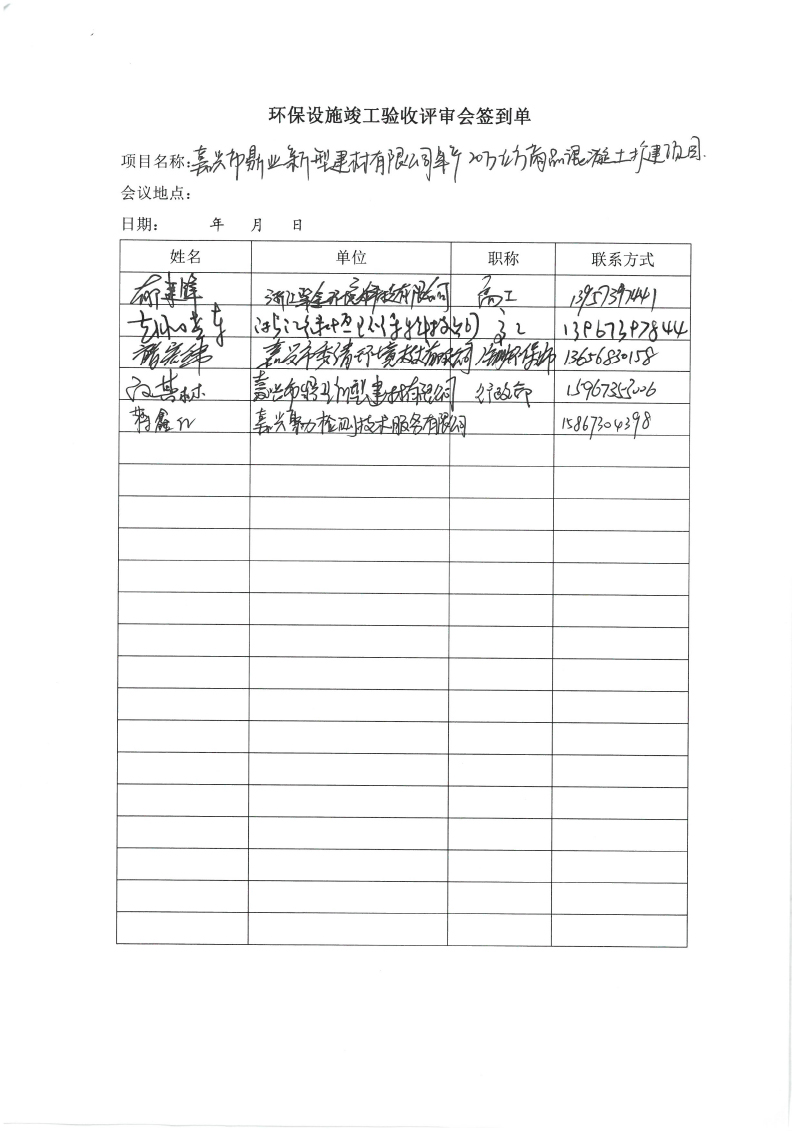 环保设施竣工验收评审会签到单
项目名称:嘉兴市鼎业新型建材有限公司年产20万立方商品混凝土扩建项目.
会议地点:
日期: 年 月 日
姓名 单位 职称 联系方式
浙江 环境科技有限公司 高工 13957397441
浙江 环保科技公司 高工 13967397844
嘉兴市 环境技术有限公司 环保师 13656830158
嘉兴市鼎业新型建材有限公司 行政部 15967355006
蒋鑫红 嘉兴聚力检测技术服务有限公司 15867304398